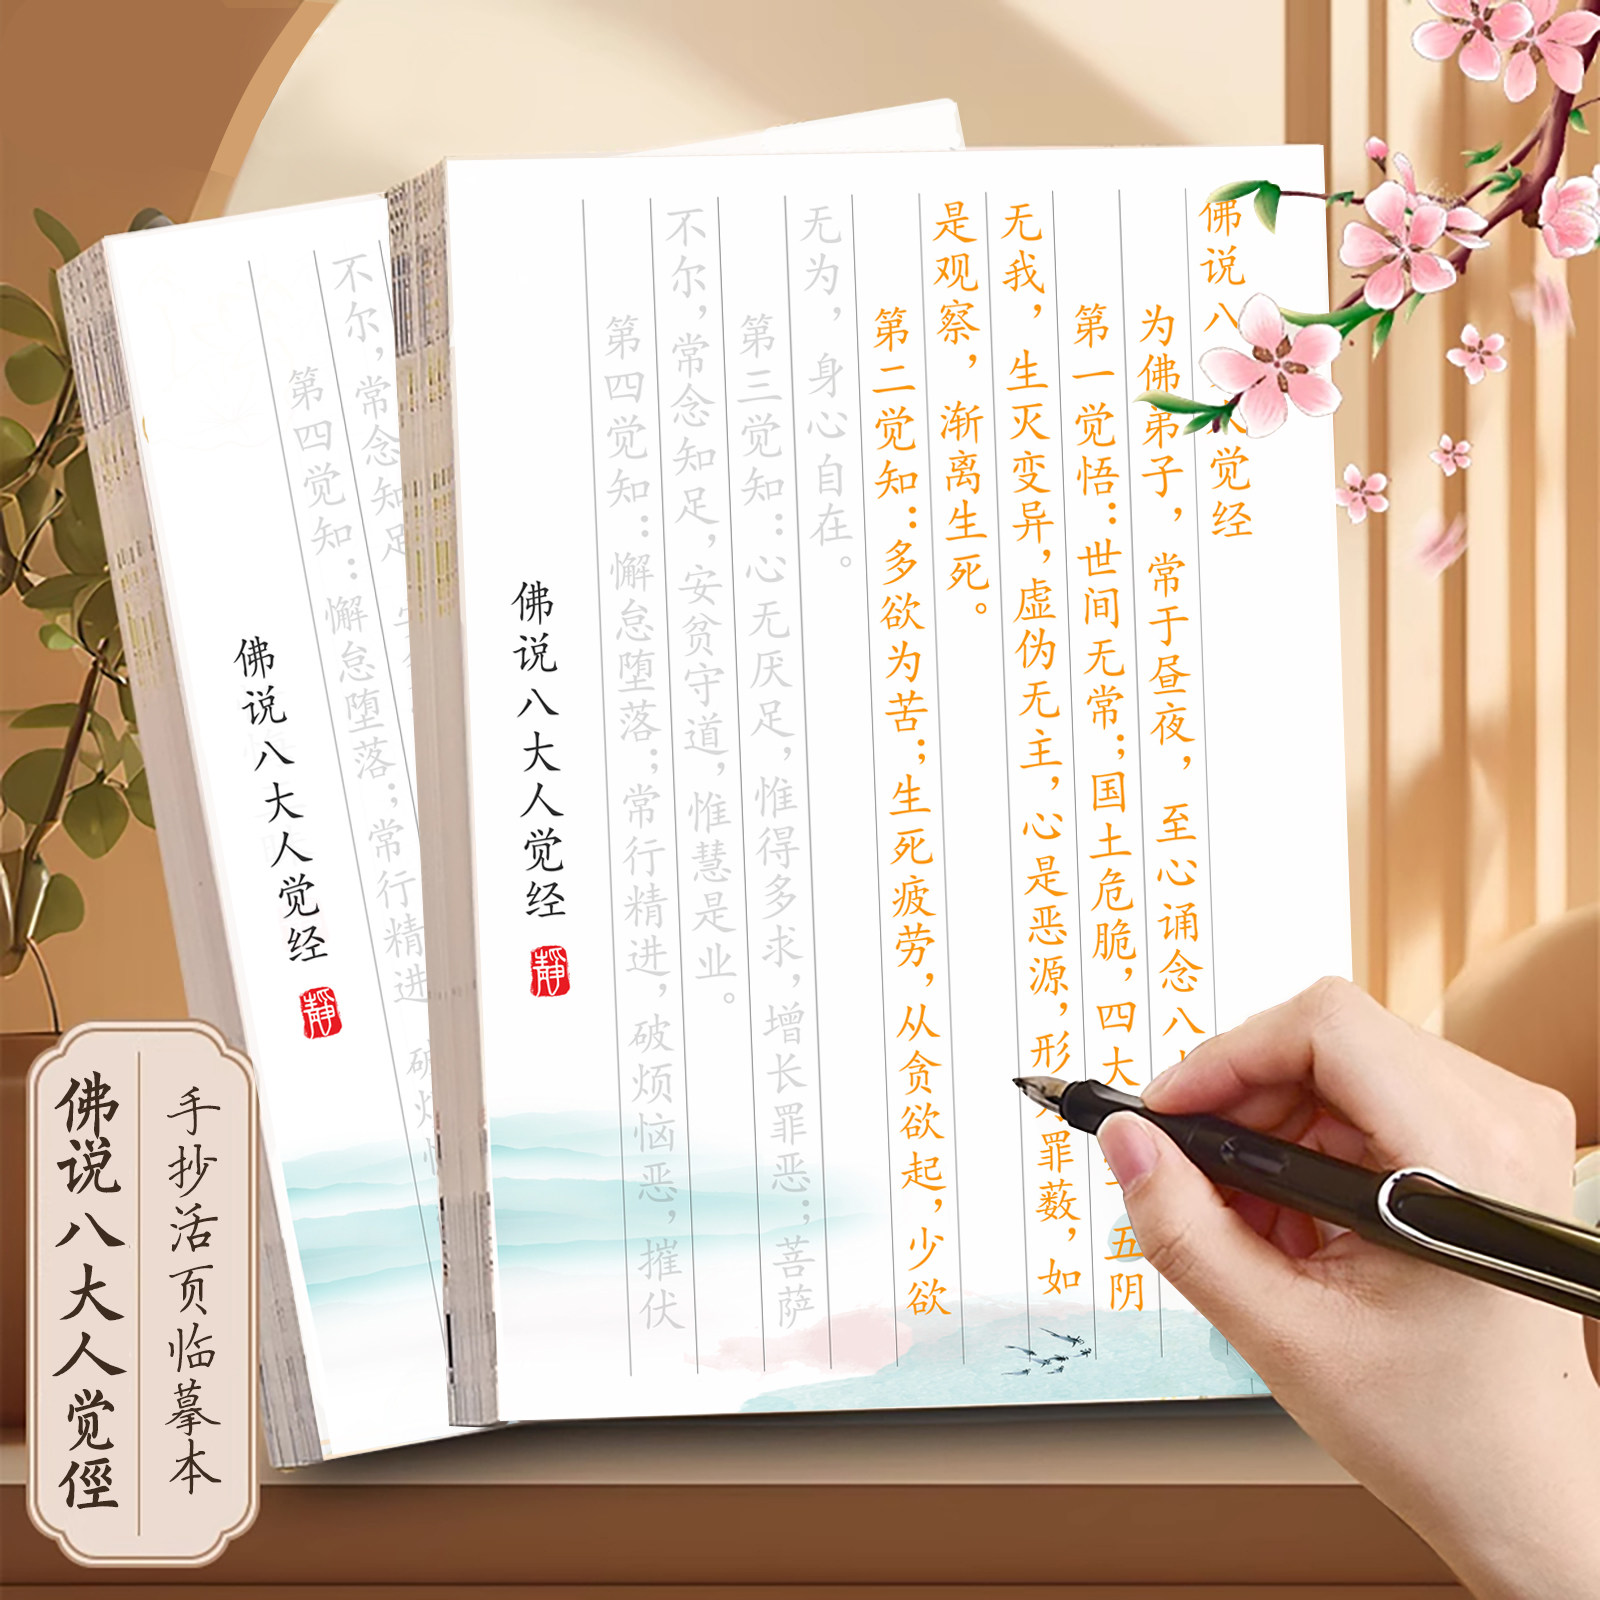 佛说八大人觉经
为佛弟子，常于昼夜，至心诵念八
第一觉悟：世间无常；国土危脆，四大 五阴
无我，生灭变异，虚伪无主，心是恶源，形 罪薮，如
是观察，渐离生死。
第二觉知：多欲为苦；生死疲劳，从贪欲起，少欲
无为，身心自在。
第三觉知：心无厌足，惟得多求，增长罪恶；菩萨
不尔，常念知足，安贫守道，惟慧是业。
第四觉知：懈怠堕落；常行精进，破烦恼恶，摧伏
佛说八大人觉经
靜
不尔，常念知足
第四觉知：懈怠堕落；常行精进
佛说八大人觉经
靜
手抄活页临摹本
佛说八大人觉經